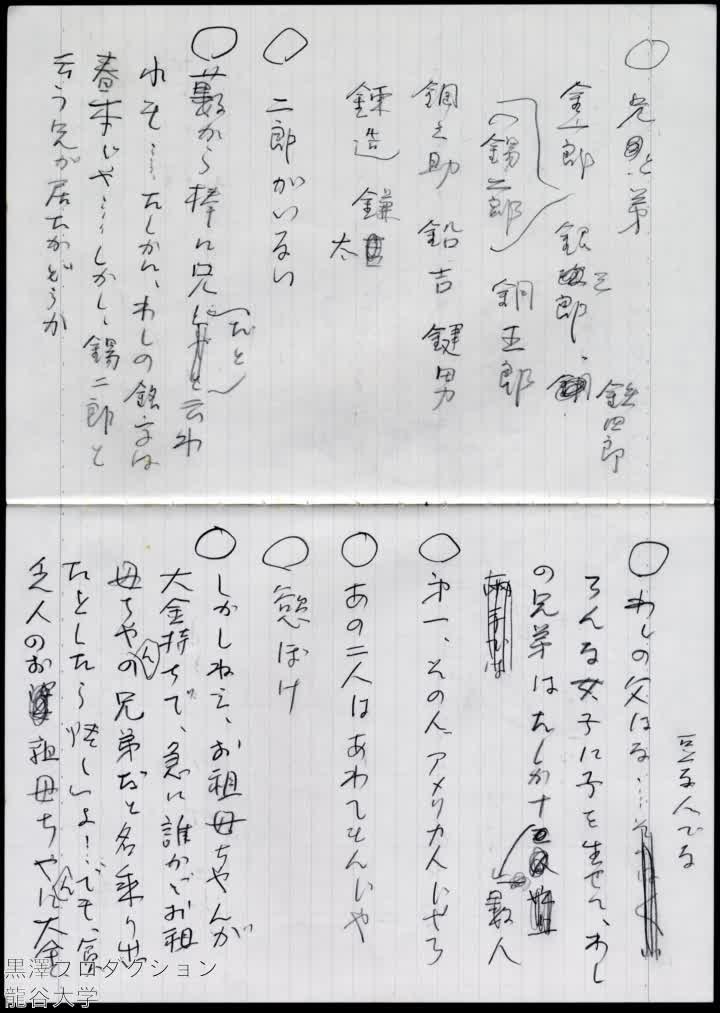 ○兄と弟
金一郎 銀三郎 鉄四郎
(錫二郎) 銅五郎
銅之助 鉛吉 鍵男
錬造 鎌太
○二郎がいない
○藪から棒に兄(だと)云われ
れそ……たしかに、わしの銘々は
春本じゃ……しかし、錫二郎と
云う兄が居たかどうか
豆な人でな
○わしの父はな……
ろんな女子に子を生せて、わし
の兄弟はたしか十
数人
○第一、その人、アメリカ人じゃろ
○あの二人はあわてもんじゃ
○慾ぼけ
○しかしねえ、お祖母ちゃんが
大金持ちで、急に誰かがお祖
母ちゃんの兄弟だと名乗り出
たとしたら怪しいよ!…でも、貧
乏人のお祖母ちゃんに大金
黒澤プロダクション
龍谷大学